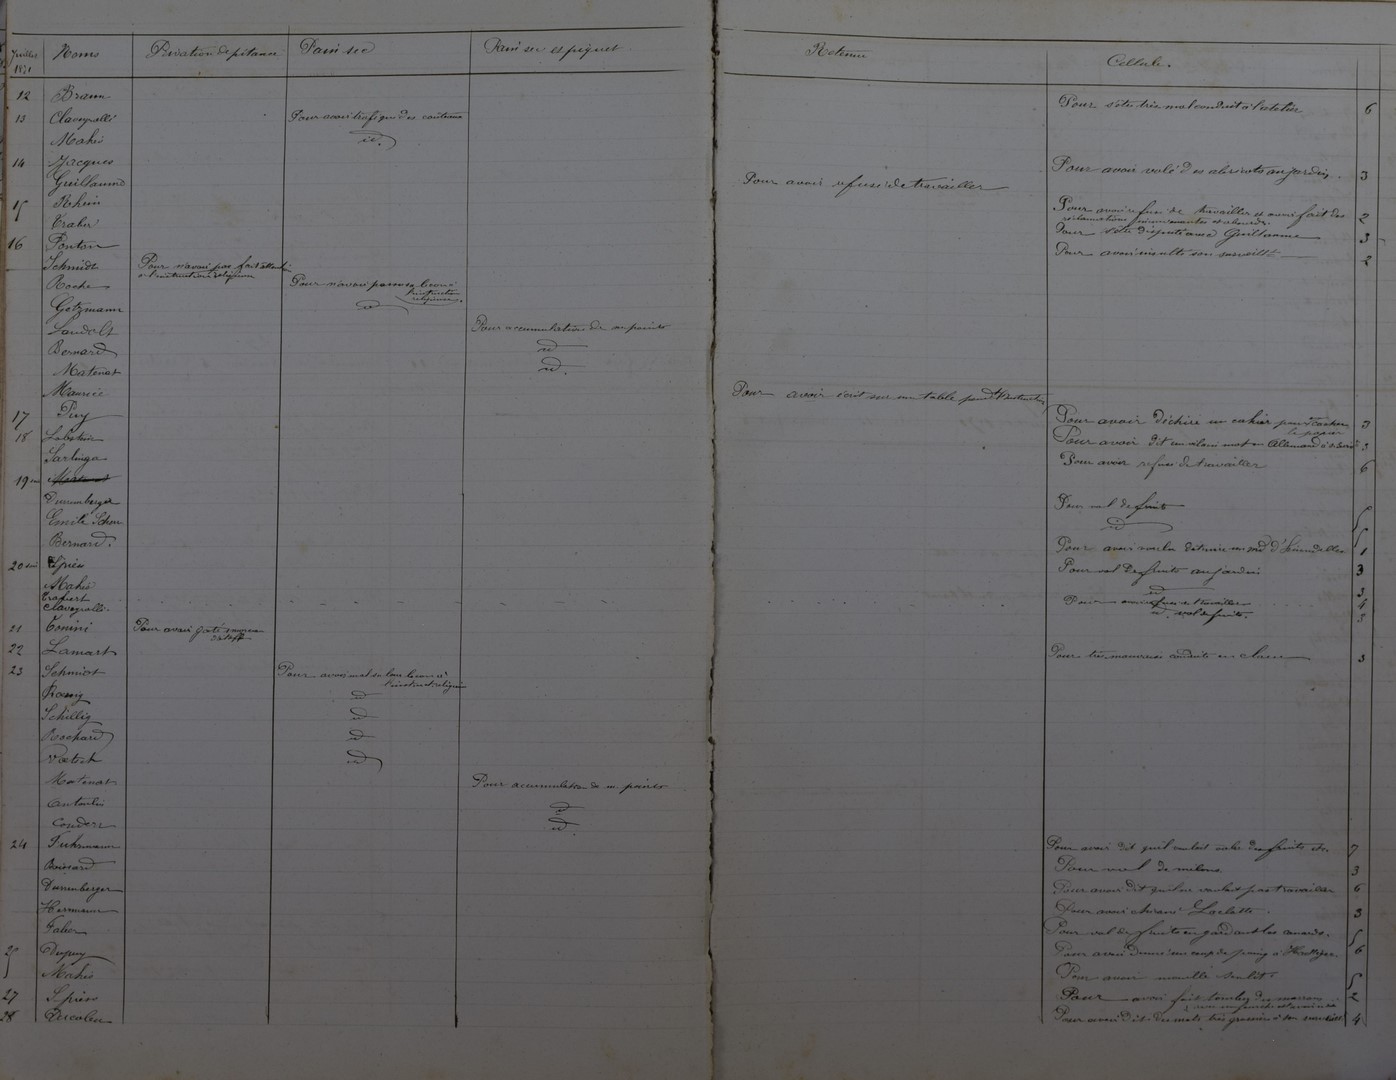 Juillet 1871 Noms Privation de pitance Pain sec Pain sec et piquet Retenue Cellule.
12 Braun Pour s'être très mal conduit à l'atelier 6
13 Claveyrolle Pour avoir trafiqué des
Mahis id.
14 Jacques Pour avoir volé des abricots au jardin. 3
Guillaume Pour avoir refusé de travailler
15 Rhein Pour avoir refusé de travailler et avoir fait des
réclamations 2
Traber Pour s'être disputé avec Guillaume 3
16 Ponton Pour avoir insulté son surveillt 2
Schmidt Pour n'avoir pas fait attent.
à l'instruction religieuse
Roche Pour n'avoir pas su sa leçon à
l'instruction
religieuse.
Getzmann id
Landolt Pour accumulation de m. points
Bernard id
Matenat id.
Maurice Pour avoir écrit sur une table pendt l'instruction
17 Puy Pour avoir déchiré un cahier pour
le papier 3
18 Lobstein Pour avoir dit un vilain mot en Allemand 3
Sarlinga Pour avoir refusé de travailler 6
19
Durrenberger Pour vol de fruits 5
Emile Scher id 5
Bernard. Pour avoir voulu détruire un nid d'hirondelles 1
20 Spies Pour vol de fruits au jardin 3
Mahis id 3
Trapert Pour avoir refusé de travailler 4
Claveyrolle. id. vol de fruits. 3
21 Tonini Pour avoir gâté
22 Lamart Pour très mauvaise conduite en classe 3
23 Schmidt Pour avoir mal su leur leçon à
l'instruct. religieuse
Kœnig id
Schillig id
Bochard id
Vœtsch id
Matenat Pour accumulation de m. points
Antonlin id
Couderc id.
24 Fuhrmann Pour avoir dit qu'il voulait voler des fruits etc. 7
Boissard Pour vol de melons 3
Durrenberger Pour avoir dit qu'il ne voulait pas travailler 6
Hermann Pour avoir 3
Faber Pour vol de fruits en gardant les canards. 5
25 Dupuy Pour avoir donné un coup de poing à 6
Mahis Pour avoir mouillé son lit. 5
27 Spiess Pour avoir fait tomber des marrons 2
28 Ducolon Pour avoir dit des mots très grossiers à son surveillt 4